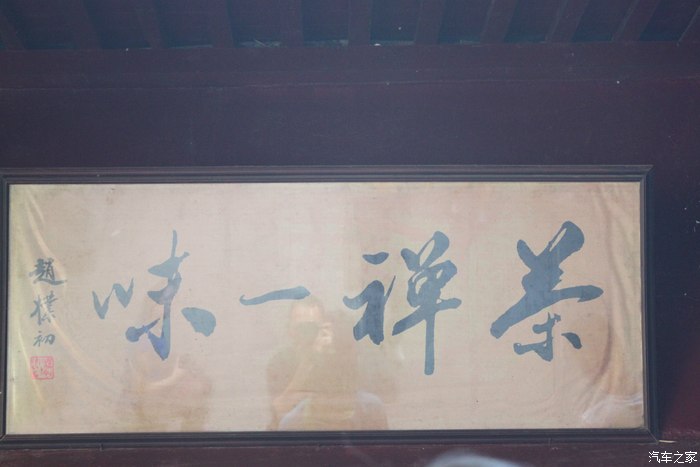 茶禅一味
趙樸初
汽车之家